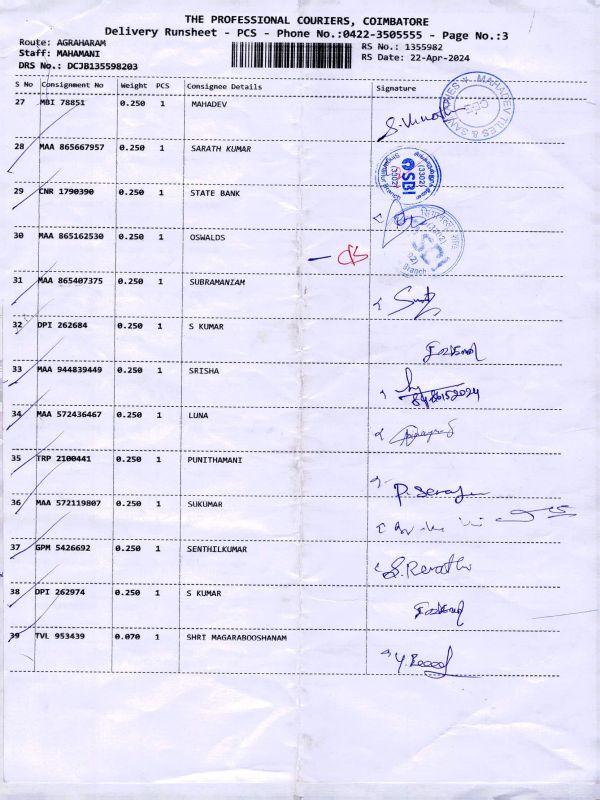 THE PROFESSIONAL COURIERS, COIMBATORE
Delivery Runsheet - PCS - Phone No.:0422-3505555 - Page No.:3
Route: AGRAHARAM
Staff: MAHAMANI
DRS No.: DCJB135598203
RS No.: 1355982
RS Date: 22-Apr-2024
S No Consignment No Weight PCS Consignee Details Signature
27 MBI 78851 0.250 1 MAHADEV
28 MAA 865667957 0.250 1 SARATH KUMAR
29 CNR 1790390 0.250 1 STATE BANK
SBI
30 MAA 865162530 0.250 1 OSWALDS
Branch
31 MAA 865407375 0.250 1 SUBRAMANIAM
32 DPI 262684 0.250 1 S KUMAR
33 MAA 944839449 0.250 1 SRISHA
34 MAA 572436467 0.250 1 LUNA
35 TRP 2100441 0.250 1 PUNITHAMANI
36 MAA 572119807 0.250 1 SUKUMAR
37 GPM 5426692 0.250 1 SENTHILKUMAR
S. Revathi
38 DPI 262974 0.250 1 S KUMAR
39 TVL 953439 0.070 1 SHRI MAGARABOOSHANAM